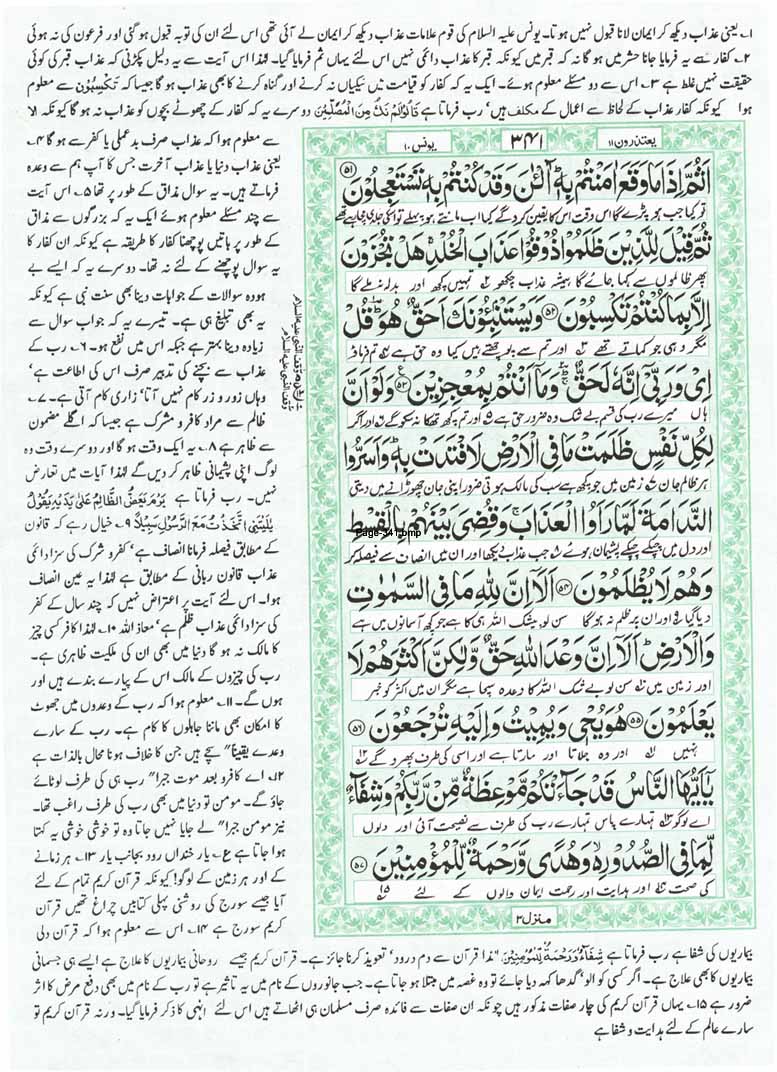 ۱؎ یعنی عذاب دیکھ کر ایمان لانا قبول نہیں ہوتا۔ یونس علیہ السلام کی قوم علامات عذاب دیکھ کر ایمان لے آئی تھی اس لئے ان کی توبہ قبول ہو گئی اور فرعون کی نہ ہوئی
۲؎ کفار سے یہ فرمایا جانا حشر میں ہو گا نہ کہ قبر میں کیونکہ قبر کا عذاب دائمی نہیں اس لئے یہاں ثم فرمایا گیا۔ لہٰذا اس آیت سے یہ دلیل پکڑنی کہ عذاب قبر کی کوئی
حقیقت نہیں غلط ہے ۳؎ اس سے دو مسئلے معلوم ہوئے۔ ایک یہ کہ کفار کو قیامت میں نیکیاں نہ کرنے اور گناہ کرنے کا بھی عذاب ہو گا جیسا کہ تَكْسِبُوْنَ سے معلوم
ہوا کیونکہ کفار عذاب کے لحاظ سے اعمال کے مکلف ہیں' رب فرماتا ہے قَالُوْا لَمْ نَكُ مِنَ الْمُصَلِّيْنَ دوسرے یہ کہ کفار کے چھوٹے بچوں کو عذاب نہ ہو گا کیونکہ الا
یعتذرون ۱۱
۳۴۱
یونس ۱۰
اَثُمَّ اِذَا مَا وَقَعَ اٰمَنْتُمْ بِهٖ آٰلْـٰٔنَ وَقَدْ كُنْتُمْ بِهٖ تَسْتَعْجِلُوْنَ ۵۱
تو کیا جب ہو پڑے گا اس وقت اس کا یقین کرو گے کیا اب مانتے ہو پہلے تو اس کی جلدی مچا رہے تھے
ثُمَّ قِيْلَ لِلَّذِيْنَ ظَلَمُوْا ذُوْقُوْا عَذَابَ الْخُلْدِ هَلْ تُجْزَوْنَ
پھر ظالموں سے کہا جائے گا ہمیشہ عذاب چکھو تمہیں کچھ اور بدلہ نہ ملے گا
اِلَّا بِمَا كُنْتُمْ تَكْسِبُوْنَ ۵۲ وَيَسْتَنْۢبِـُٔوْنَكَ اَحَقٌّ هُوَ قُلْ
مگر وہی جو کماتے تھے اور تم سے پوچھتے ہیں کیا وہ حق ہے تم فرماؤ
اِيْ وَرَبِّيْٓ اِنَّهٗ لَحَقٌّ وَمَآ اَنْتُمْ بِمُعْجِزِيْنَ ۵۳ وَلَوْ اَنَّ
ہاں میرے رب کی قسم بے شک وہ ضرور حق ہے اور تم کچھ تھکا نہ سکو گے اور اگر
لِكُلِّ نَفْسٍ ظَلَمَتْ مَا فِي الْاَرْضِ لَافْتَدَتْ بِهٖ وَاَسَرُّوا
ہر ظالم جان زمین میں جو کچھ ہے سب کی مالک ہوتی ضرور اپنی جان چھڑانے میں دیتی
النَّدَامَةَ لَمَّا رَاَوُا الْعَذَابَ وَقُضِيَ بَيْنَهُمْ بِالْقِسْطِ
Page-341.bmp
اور دل میں چپکے چپکے پشیمان ہوئے جب عذاب دیکھا اور ان میں انصاف سے فیصلہ کر
وَهُمْ لَا يُظْلَمُوْنَ ۵۴ اَلَآ اِنَّ لِلّٰهِ مَا فِي السَّمٰوٰتِ
دیا گیا اور ان پر ظلم نہ ہو گا سن لو بیشک اللہ ہی کا ہے جو کچھ آسمانوں میں ہے
وَالْاَرْضِ اَلَآ اِنَّ وَعْدَ اللّٰهِ حَقٌّ وَّلٰكِنَّ اَكْثَرَهُمْ لَا
اور زمین میں سن لو بے شک اللہ کا وعدہ سچا ہے مگر ان میں اکثر کو خبر
يَعْلَمُوْنَ ۵۵ هُوَ يُحْيٖ وَيُمِيْتُ وَاِلَيْهِ تُرْجَعُوْنَ ۵۶
نہیں وہ جلاتا اور مارتا ہے اور اسی کی طرف پھرو گے
يٰٓاَيُّهَا النَّاسُ قَدْ جَآءَتْكُمْ مَّوْعِظَةٌ مِّنْ رَّبِّكُمْ وَشِفَآءٌ
اے لوگو تمہارے پاس تمہارے رب کی طرف سے نصیحت آئی اور دلوں
لِّمَا فِي الصُّدُوْرِ وَهُدًى وَّرَحْمَةٌ لِّلْمُؤْمِنِيْنَ ۵۷
کی صحت اور ہدایت اور رحمت ایمان والوں کے لئے
منزل ۳
سے معلوم ہوا کہ عذاب صرف بدعملی یا کفر سے ہو گا ۴؎
یعنی عذاب دنیا یا عذاب آخرت جس کا آپ ہم سے وعدہ
فرماتے ہیں۔ یہ سوال مذاق کے طور پر تھا ۵؎ اس آیت
سے چند مسئلے معلوم ہوئے ایک یہ کہ بزرگوں سے مذاق
کے طور پر باتیں پوچھنا کفار کا طریقہ ہے کیونکہ ان کفار کا
یہ سوال پوچھنے کے لئے نہ تھا۔ دوسرے یہ کہ ایسے بے
ہودہ سوالات کے جوابات دینا بھی سنت نبی ہے کیونکہ
یہ بھی تبلیغ ہی ہے۔ تیسرے یہ کہ جواب سوال سے
زیادہ دینا بہتر ہے جبکہ اس میں نفع ہو۔ ۶؎ رب کے
عذاب سے بچنے کی تدبیر صرف اس کی اطاعت ہے'
وہاں زور و زر کام نہیں آتا' زاری کام آتی ہے۔ ۷؎
ظالم سے مراد کافر و مشرک ہے جیسا کہ اگلے مضمون
سے ظاہر ہے ۸؎ یہ ایک وقت ہو گا اور دوسرے وقت وہ
لوگ اپنی پشیمانی ظاہر کر دیں گے لہٰذا آیات میں تعارض
نہیں۔ رب فرماتا ہے يَوْمَ يَعَضُّ الظَّالِمُ عَلٰى يَدَيْهِ يَقُوْلُ
يٰلَيْتَنِي اتَّخَذْتُ مَعَ الرَّسُوْلِ سَبِيْلًا ۹؎ خیال رہے کہ قانون
کے مطابق فیصلہ فرمانا انصاف ہے' کفر و شرک کی سزا دائمی
عذاب قانون ربانی کے مطابق ہے لہٰذا یہ عین انصاف
ہوا۔ اس لئے آیت پر اعتراض نہیں کہ چند سال کے کفر
کی سزا دائمی عذاب ظلم ہے' معاذ اللہ ۱۰؎ لہٰذا کافر کسی چیز
کا مالک نہ ہو گا دنیا میں بھی ان کی ملکیت ظاہری ہے۔
رب کی چیزوں کے مالک اس کے پیارے بندے ہیں اور
ہوں گے۔ ۱۱؎ معلوم ہوا کہ رب کے وعدوں میں جھوٹ
کا امکان بھی ماننا جاہلوں کا کام ہے۔ رب کے سارے
وعدے یقیناً" سچے ہیں جن کا خلاف ہونا محال بالذات ہے
۱۲؎ اے کافرو بعد موت جبراً" رب ہی کی طرف لوٹائے
جاؤ گے۔ مومن تو دنیا میں بھی رب کی طرف راغب تھا۔
نیز مومن جبراً" لے جایا نہیں جاتا وہ تو خوشی خوشی یہ کہتا
ہوا جاتا ہے ع یار خنداں رود بجانب یار ۱۳؎ ہر زمانے
کے اور ہر زمین کے لوگو! کیونکہ قرآن کریم تمام کے لئے
آیا جیسے سورج کی روشنی پہلی کتابیں چراغ تھیں قرآن
کریم سورج ہے ۱۴؎ اس سے معلوم ہوا کہ قرآن دلی
بیماریوں کی شفا ہے رب فرماتا ہے شِفَآءٌ وَّرَحْمَةٌ لِّلْمُؤْمِنِيْنَ "لہٰذا قرآن سے دم درود' تعویذ کرنا جائز ہے۔ قرآن کریم جیسے روحانی بیماریوں کا علاج ہے ایسے ہی جسمانی
بیماریوں کا بھی علاج ہے۔ اگر کسی کو الو' گدھا کہہ دیا جائے تو وہ غصہ میں مبتلا ہو جاتا ہے۔ جب جانوروں کے نام میں یہ تاثیر ہے تو رب کے نام میں بھی دفع مرض کا اثر
ضرور ہے ۱۵؎ یہاں قرآن کریم کی چار صفات مذکور ہیں چونکہ ان صفات سے فائدہ صرف مسلمان ہی اٹھاتے ہیں اس لئے انہی کا ذکر فرمایا گیا۔ ورنہ قرآن کریم تو
سارے عالم کے لئے ہدایت و شفا ہے